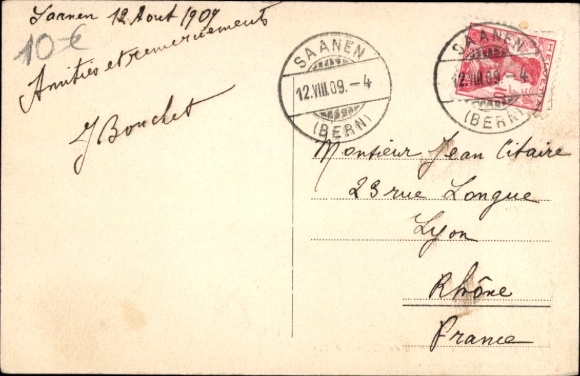 Saanen 12 Aout 1909
10-€
Amitiés et remerciements
J Bouchet
SAANEN
12.VIII.09.-4
(BERN)
SAANEN
12.VIII.09.-4
(BERN)
HELVETIA
10
Monsieur Jean Citaire
23 rue Longue
Lyon
Rhône
France